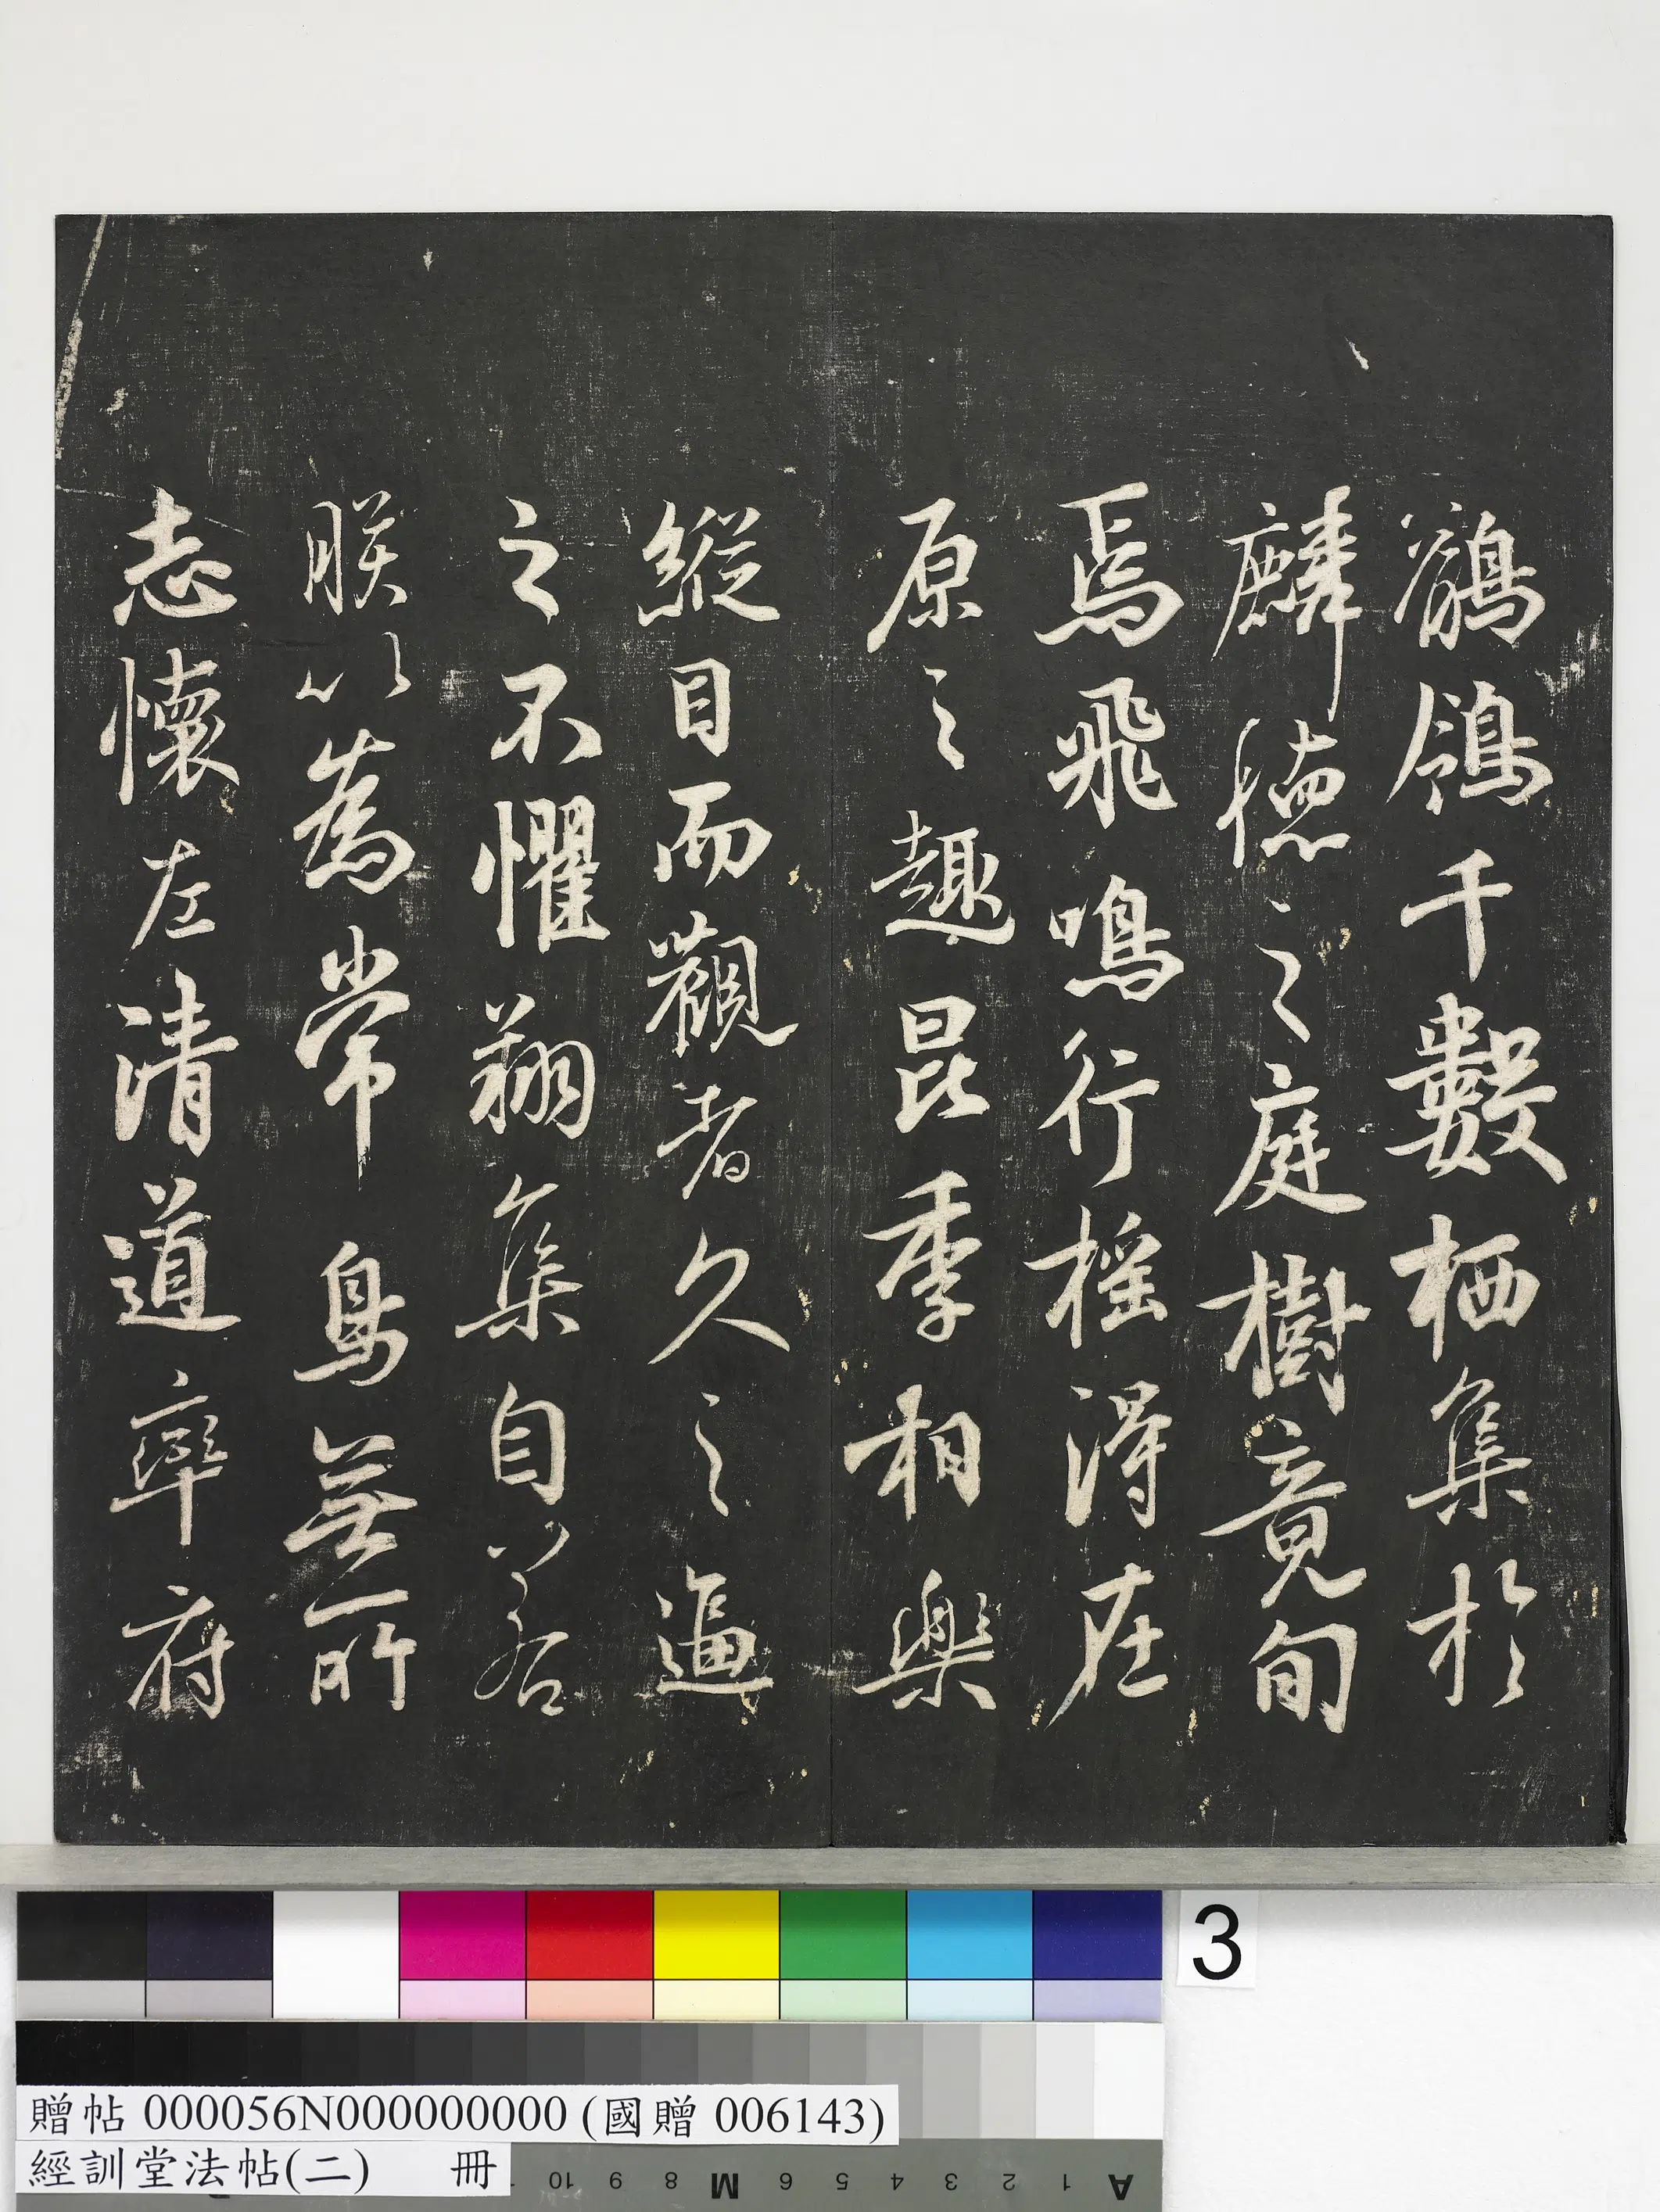 鶺鴒千數栖集於
麟德之庭樹竟旬
焉飛鳴行搖得在
原之趣昆季相樂
縱目而觀者久之逼
之不懼翔集自若
朕以為常鳥無所
志懷左清道率府
3
贈帖 000056N000000000 (國贈 006143)
經訓堂法帖(二) 冊
10 9 8 M 6 5 4 3 2 1 A